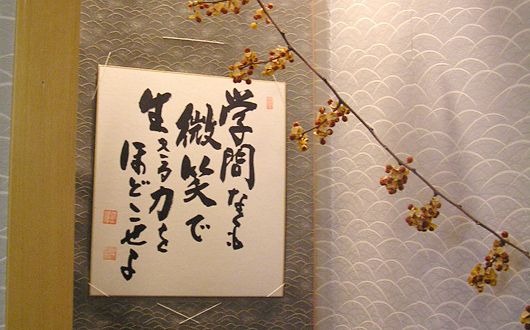 学問なくも
微笑で
生きる力を
ほどこせよ